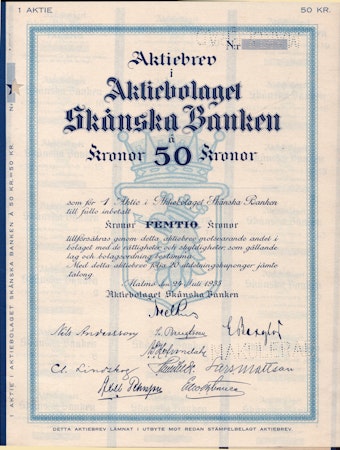 1 AKTIE
50 KR.
Nr
Aktiebrev
i
Aktiebolaget
Skånska Banken
å
Kronor 50 Kronor
som för 1 Aktie i Aktiebolaget Skånska Banken
till fullo inbetalt
Kronor FEMTIO Kronor
tillförsäkras genom detta aktiebrev motsvarande andel i
bolaget med de rättigheter och skyldigheter som gällande
lag och bolagsordning bestämma.
Med detta aktiebrev följa 20 utdelningskuponger jämte
talong.
Malmö den 24 Juli 1933
Aktiebolaget Skånska Banken
Nils Andersson
MAKULERAD
C. Lindskog
Lars Mattson
DETTA AKTIEBREV LÄMNAT I UTBYTE MOT REDAN STÄMPELBELAGT AKTIEBREV.
1 AKTIE I AKTIEBOLAGET SKÅNSKA BANKEN Å 50 KR.=50 KR. Nr